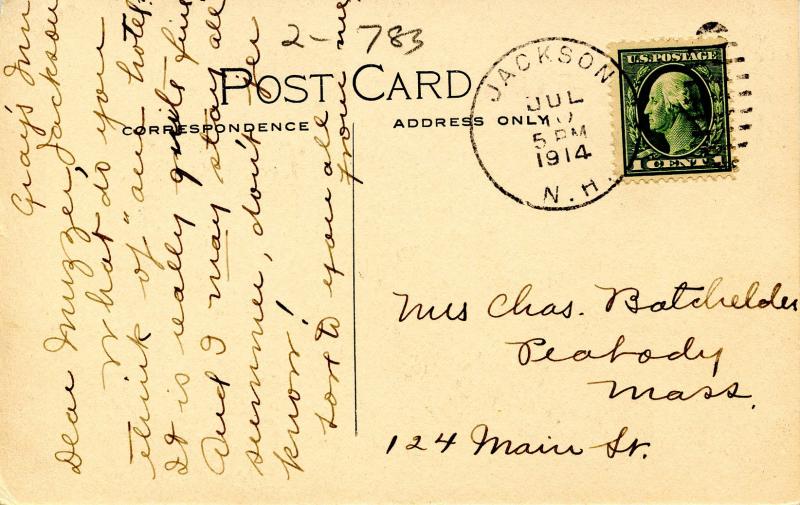 2-783
POST CARD
CORRESPONDENCE
ADDRESS ONLY
JACKSON
JUL
5 PM
1914
N.H.
U.S. POSTAGE
1 CENT 1
Gray's Inn
Jackson
Dear Muzzer,
What do you
think of "our hotel"
It is really quite fine
And I may stay all
summer, don't yer
know!
Love to you all
from me
Mrs Chas. Batchelder
Peabody
Mass.
124 Main St.